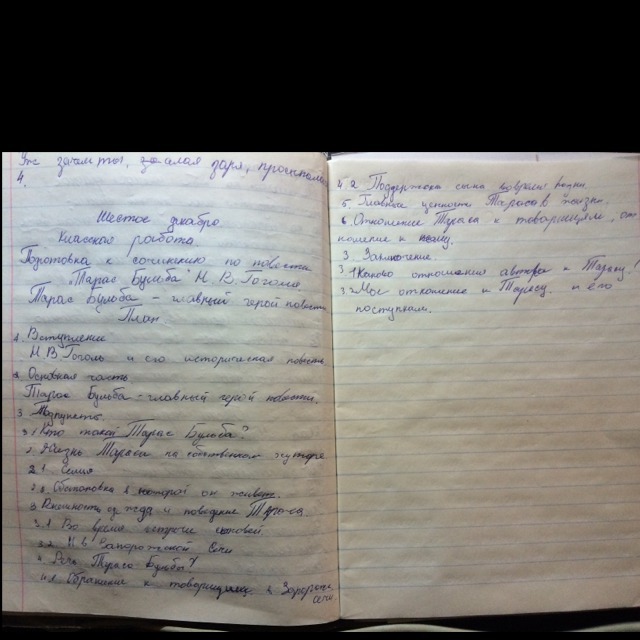 Уж зачем ты, алая заря,
4.
Шестое декабря
Классная работа.
Подготовка к сочинению по повести
"Тарас Бульба" Н. В. Гоголя
Тарас Бульба - главный герой повести
План
1. Вступление
Н. В. Гоголь и его историческая повесть
2. Основная часть.
Тарас Бульба - главный герой повести.
3.
3.1 Кто такой Тарас Бульба?
2. Жизнь Тараса на собственном хуторе
2.1 Семья
2.2. Обстановка в которой он живет.
3. Внешность одежда и поведение Тараса
3.1 Во время встречи сыновей
3.2 Н в Запорожской Сечи
4. Речь Тараса Бульбы?
4.1 Обращение к товарищам в Запорож
Сечи
4.2. Поддержка сына вовремя казни.
5. Главные ценности Тараса в жизни.
6. Отношение Тараса к товарищам, от
ношение к
3 Заключение.
3.1 Каково отношение автора к Тарасу?
3.2 Мое отношение к Тарасу и его
поступкам.